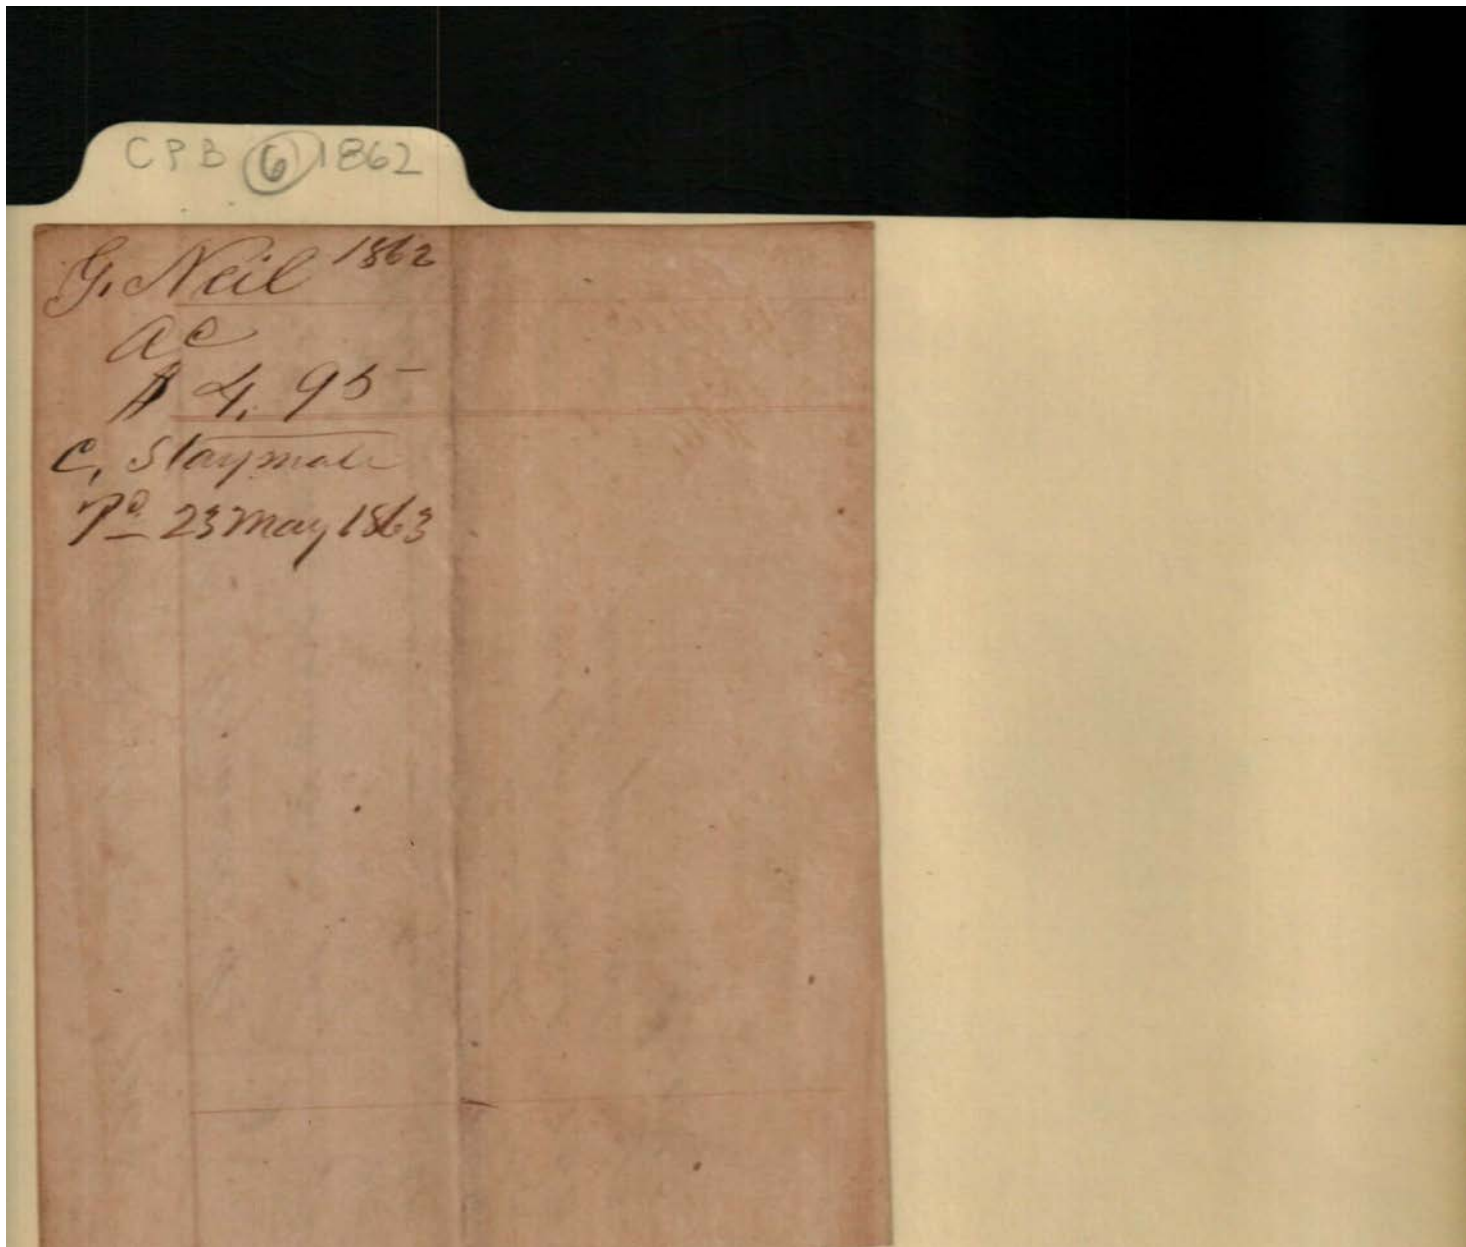 CPB 6 1862
G. Neil 1862
ac
$ 4.95
C. Staymate
Pd 23 May 1863